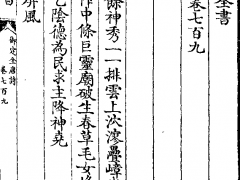 全書
卷七百九
餘神秀一一排雲上泬漻疊嶂
作中條巨靈廟破生春草毛女
乞陰德為民求主降神堯
屏風
御定全唐詩
卷七百九